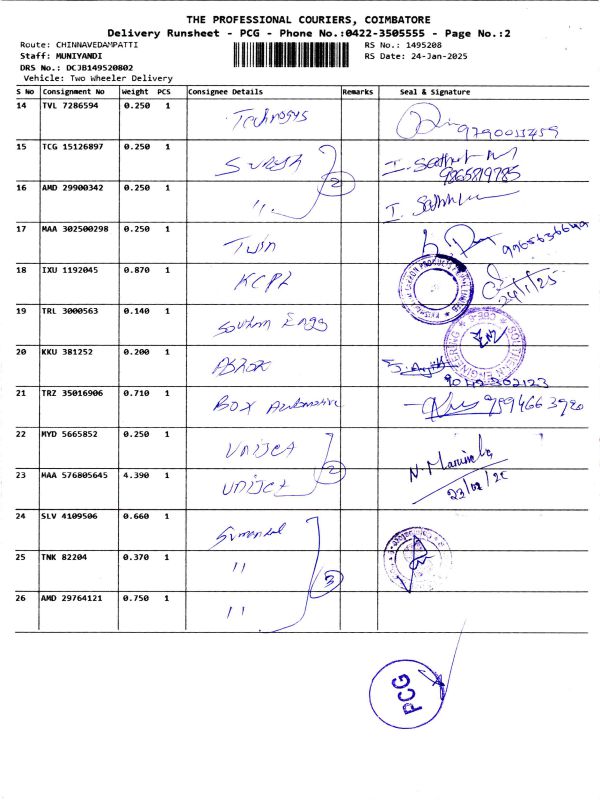 THE PROFESSIONAL COURIERS, COIMBATORE
Delivery Runsheet - PCG - Phone No.:0422-3505555 - Page No.:2
Route: CHINNAVEDAMPATTI RS No.: 1495208
Staff: MUNIYANDI RS Date: 24-Jan-2025
DRS No.: DCJB149520802
Vehicle: Two Wheeler Delivery
S No Consignment No Weight PCS Consignee Details Remarks Seal & Signature
14 TVL 7286594 0.250 1 Technosys
15 TCG 15126897 0.250 1 Suresh 9865819785
16 AMD 29900342 0.250 1 ,, 2
17 MAA 302500298 0.250 1 Twin
18 IXU 1192045 0.870 1 KCPL 24/1/25
19 TRL 3000563 0.140 1 Southern Engg
20 KKU 381252 0.200 1 Ashok 9042302123
21 TRZ 35016906 0.710 1 Box Automotive 9894663920
22 MYD 5665852 0.250 1 Unijet
23 MAA 576805645 4.390 1 Unijet 2
24 SLV 4109506 0.660 1
25 TNK 82204 0.370 1 ,, 3
26 AMD 29764121 0.750 1 ,,
PCG